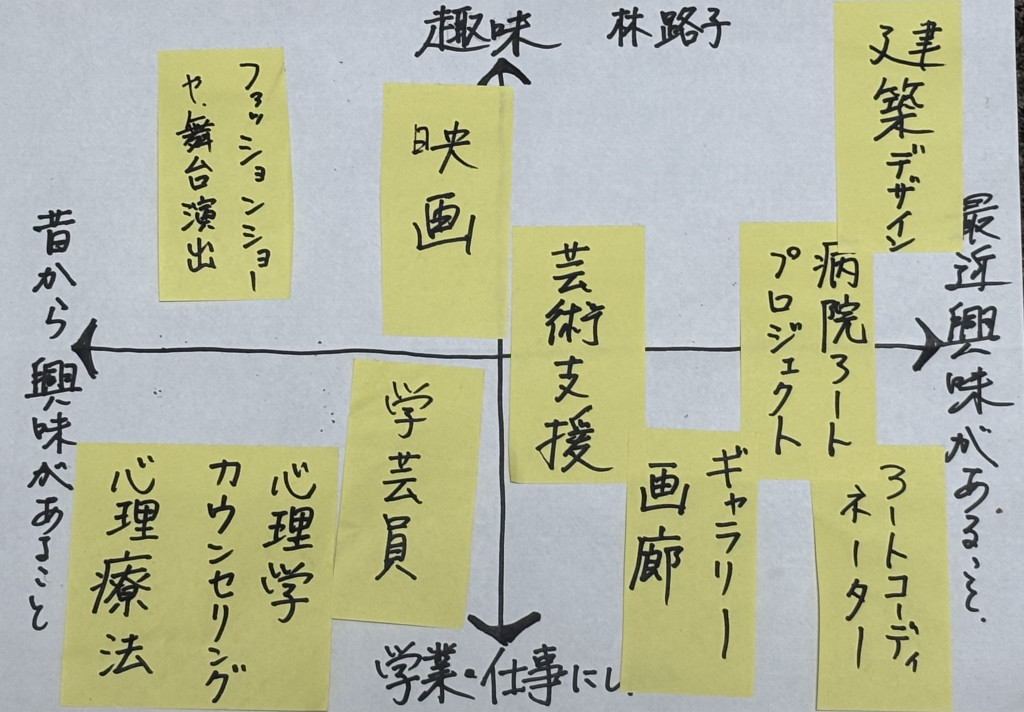 趣味
林路子
建築デザイン
ファッションショー
や舞台演出
映画
昔から興味があること
最近興味があること
芸術支援
病院アート
プロジェクト
学芸員
心理学
カウンセリング
心理療法
ギャラリー
画廊
アートコーディ
ネーター
学業・仕事にし